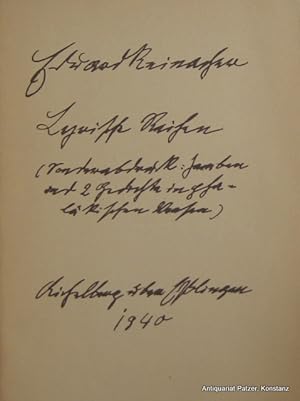 Eduard Reinacher
Lyrische Reihen
(Sonderabdruck: Jamben
und 2 Gedichte in pha-
läkischen Versen)
Aichelberg über Esslingen
1940
Antiquariat Patzer, Konstanz